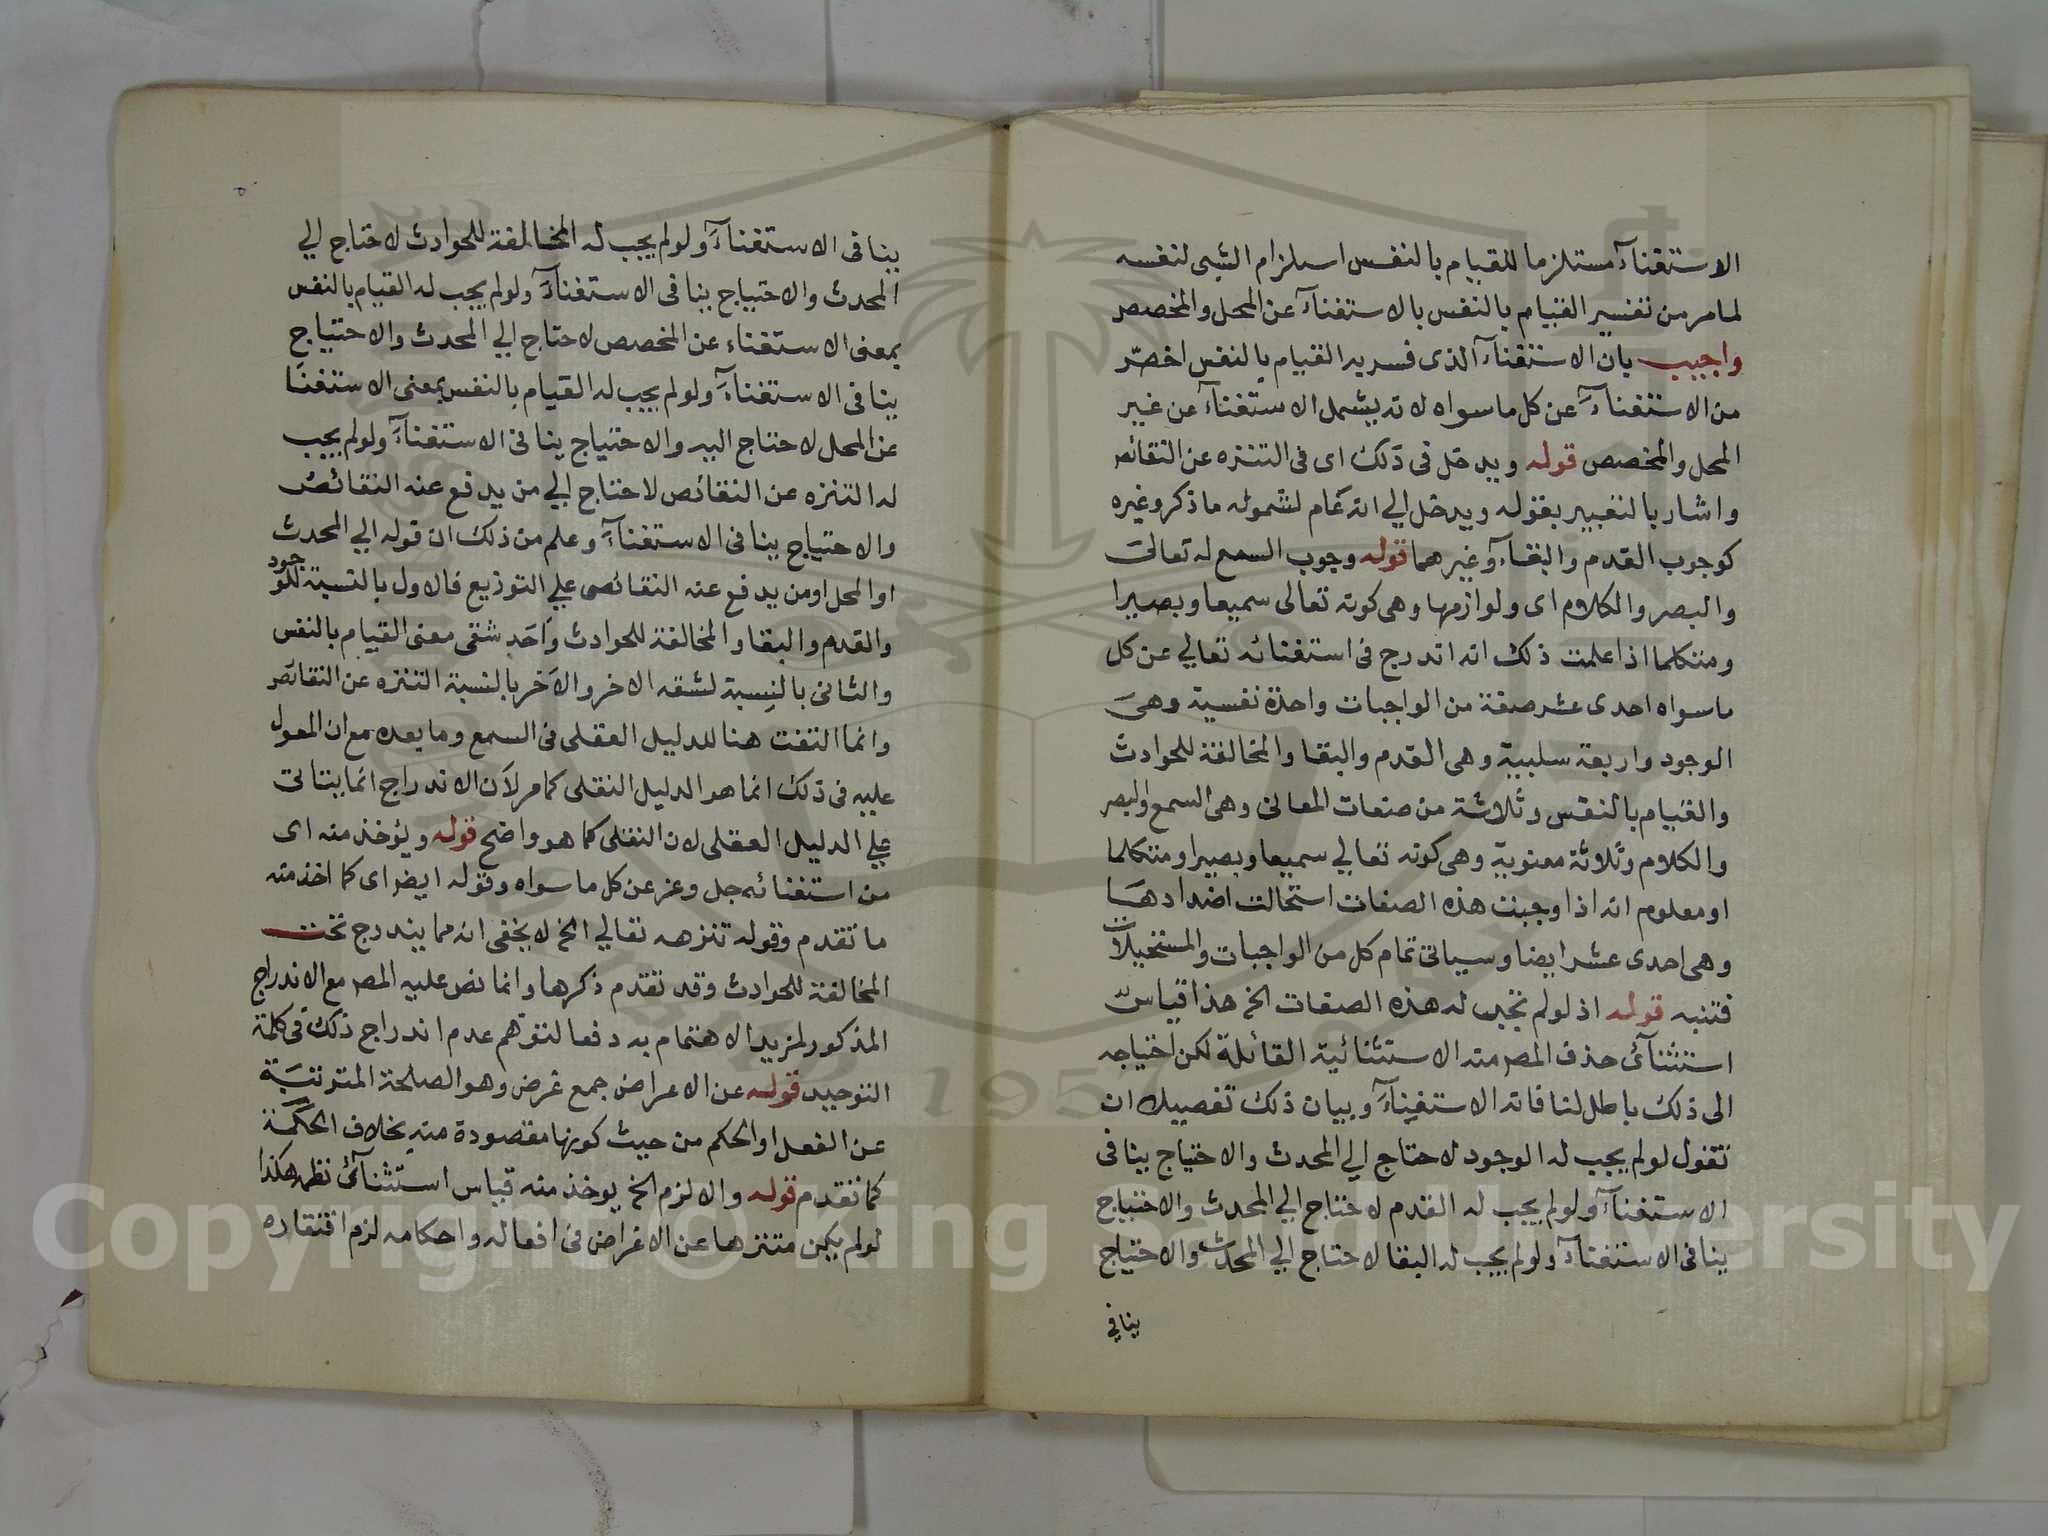 الاستغنآء مستلزما للقيام بالنفس استلزام الشيى لنفسه
لما مر من تفسير القيام بالنفس بالاستغنآء عن المحل والمخصص
واجيب بان الاستغنآء الذى فسر به القيام بالنفس اخصّ
من الاستغنآء عن كل ما سواه لانه يشمل الاستغنآء عن غير
المحل والمخصص قوله ويدخل فى ذلك اى فى التنزه عن النقائص
واشار بالتعبير بقوله ويدخل الي انه عام لشموله ما ذكر وغيره
كوجوب القدم والبقآء وغيرهما قوله وجوب السمع له تعالى
والبصر والكلام اى ولوازمها وهى كونه تعالى سميعا وبصيرا
ومتكلما اذا علمت ذلك انه اندرج فى استغنائه تعالي عن كل
ما سواه احدى عشر صفة من الواجبات واحدة نفسية وهى
الوجود واربعة سلبية وهى القدم والبقا والمخالفة للحوادث
والقيام بالنفس وثلاثة من صفات المعانى وهى السمع والبصر
والكلام وثلاثة معنوية وهى كونه تعالي سميعا وبصيرا ومتكلما
او معلوم انه اذا وجبت هذه الصفات استحالت اضدادها
وهى احدى عشر ايضا وسياتى تمام كل من الواجبات والمستحيلات
فتنبه قوله اذ لو لم تجب له هذه الصفات الخ هذا قياس
استثنآئى حذف المصر منه الاستثنائية القائلة لكن احتياجه
الى ذلك باطل لمنافاته الاستغنآء وبيان ذلك تفصيلا ان
تقول لو لم يجب له الوجود لاحتاج الي المحدث والاحتياج ينافى
الاستغنآء ولو لم يجب له القدم لاحتاج الي المحدث والاحتياج
ينافى الاستغنآء ولو لم يجب له البقا لاحتاج الي المحدث والاحتياج
ينافي
ينافى الاستغنآء ولو لم يجب له المخالفة للحوادث لاحتاج الي
المحدث والاحتياج ينافى الاستغنآء ولو لم يجب له القيام بالنفس
بمعنى الاستغناء عن المخصص لاحتاج الي المحدث والاحتياج
ينافى الاستغنآء ولو لم يجب له القيام بالنفس بمعنى الاستغنا
عن المحل لاحتاج اليه والاحتياج ينافى الاستغنآء ولو لم يجب
له التنزه عن النقائص لاحتاج الي من يدفع عنه النقائص
والاحتياج ينافى الاستغنآء وعلم من ذلك ان قوله الي المحدث
او المحل او من يدفع عنه النقائص علي التوزيع فالاول بالنسبة للوجود
والقدم والبقا والمخالفة للحوادث واحد شقى معنى القيام بالنفس
والثانى بالنسبة لشقه الاخر والآخر بالنسبة التنزه عن النقائص
وانما التفت هنا للدليل العقلى فى السمع وما بعده مع ان المعول
عليه فى ذلك انما هو الدليل النقلى كما مر لان الاندراج انما يتاتى
علي الدليل العقلى لان النقلى كما هو واضح قوله ويؤخذ منه اى
من استغنائه جل وعز عن كل ما سواه وقوله ايضا اى كما اخذ منه
ما تقدم وقوله تنزهه تعالي الخ لا يخفى انه مما يندرج تحت
المخالفة للحوادث وقد تقدم ذكرها وانما نص عليه المصر مع الاندراج
المذكور لمزيد الاهتمام به دفعا لتوهم عدم اندراج ذلك فى كلمة
التوحيد قوله عن الاعراض جمع غرض وهو الصلحة المترتبة
عن الفعل او الحكم من حيث كونها مقصودة منه بخلاف الحكمة
كما تقدم قوله والا لزم الخ يوخذ منه قياس استثنآئى نظمه هكذا
لو لم يكن متنزها عن الاغراض فى افعاله واحكامه لزم افتقاره
Copyright © King Saud University
1957